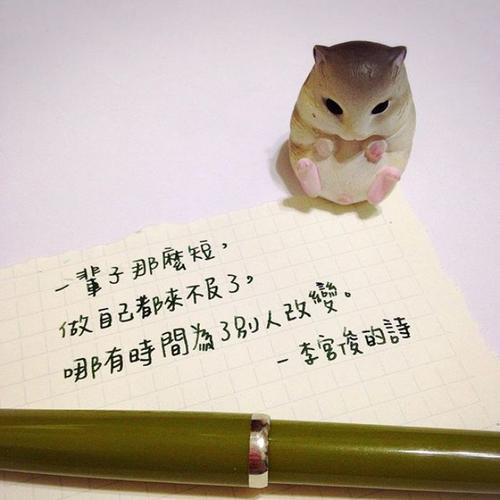 一輩子那麼短，
做自己都來不及了，
哪有時間為了別人改變。
—李宮俊的詩